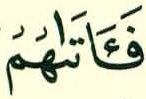 فَـَٔاتَىٰهُمُ